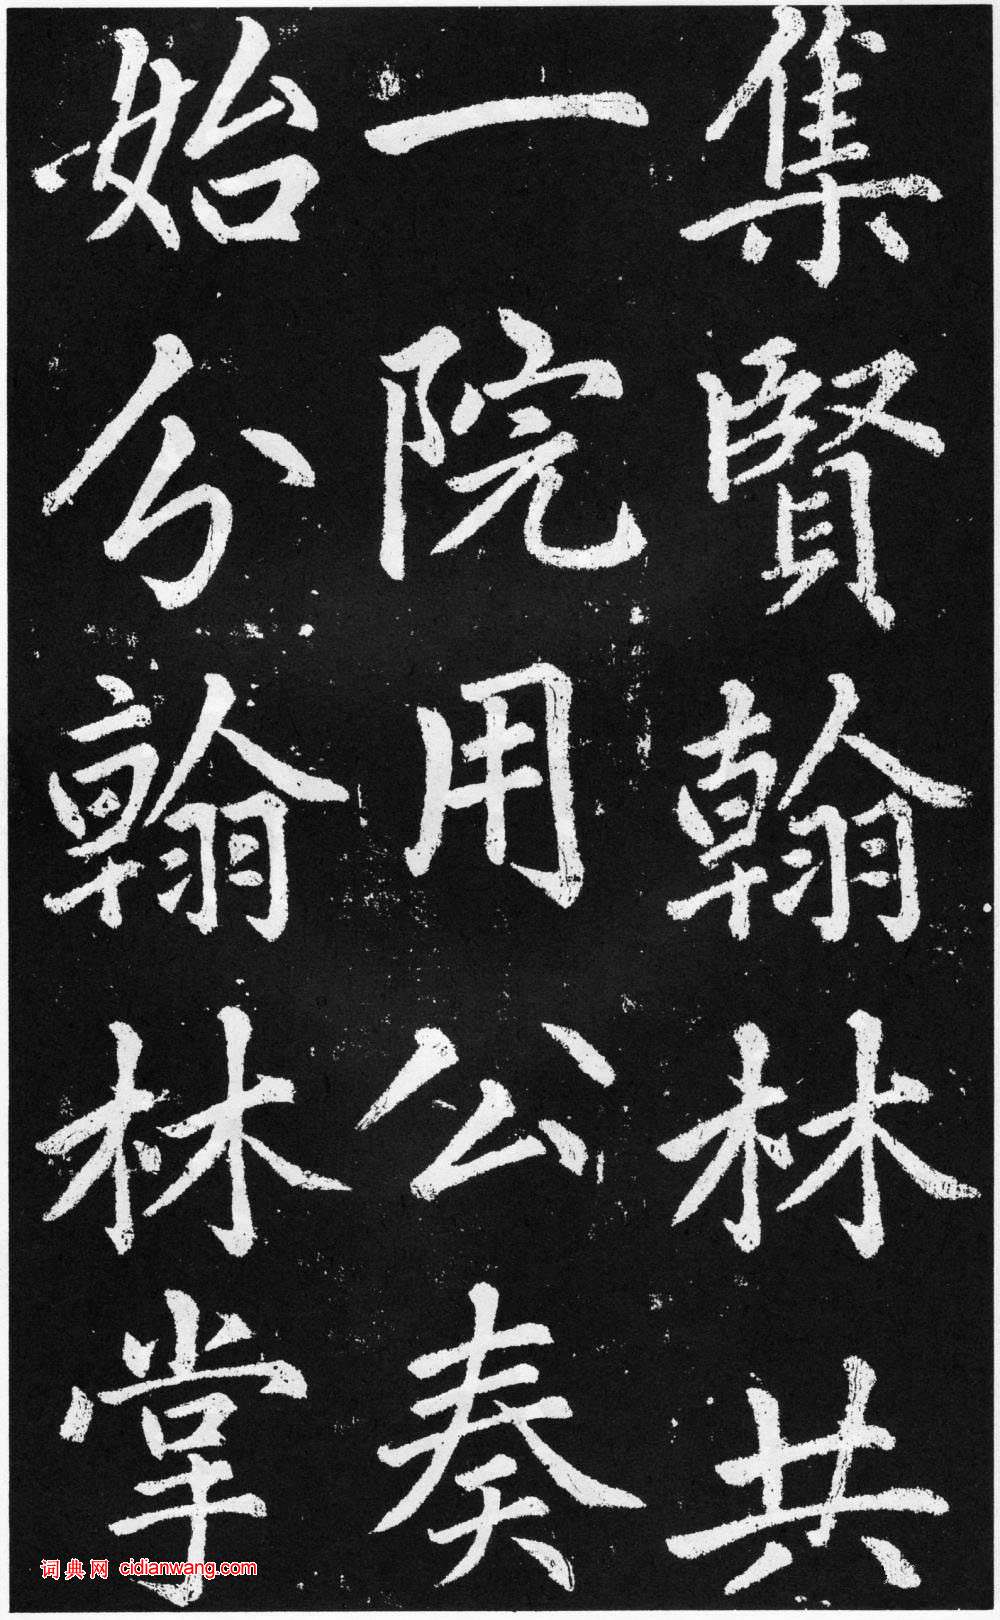 集賢翰林共
一院用公奏
始分翰林掌
词典网 cidianwang.com